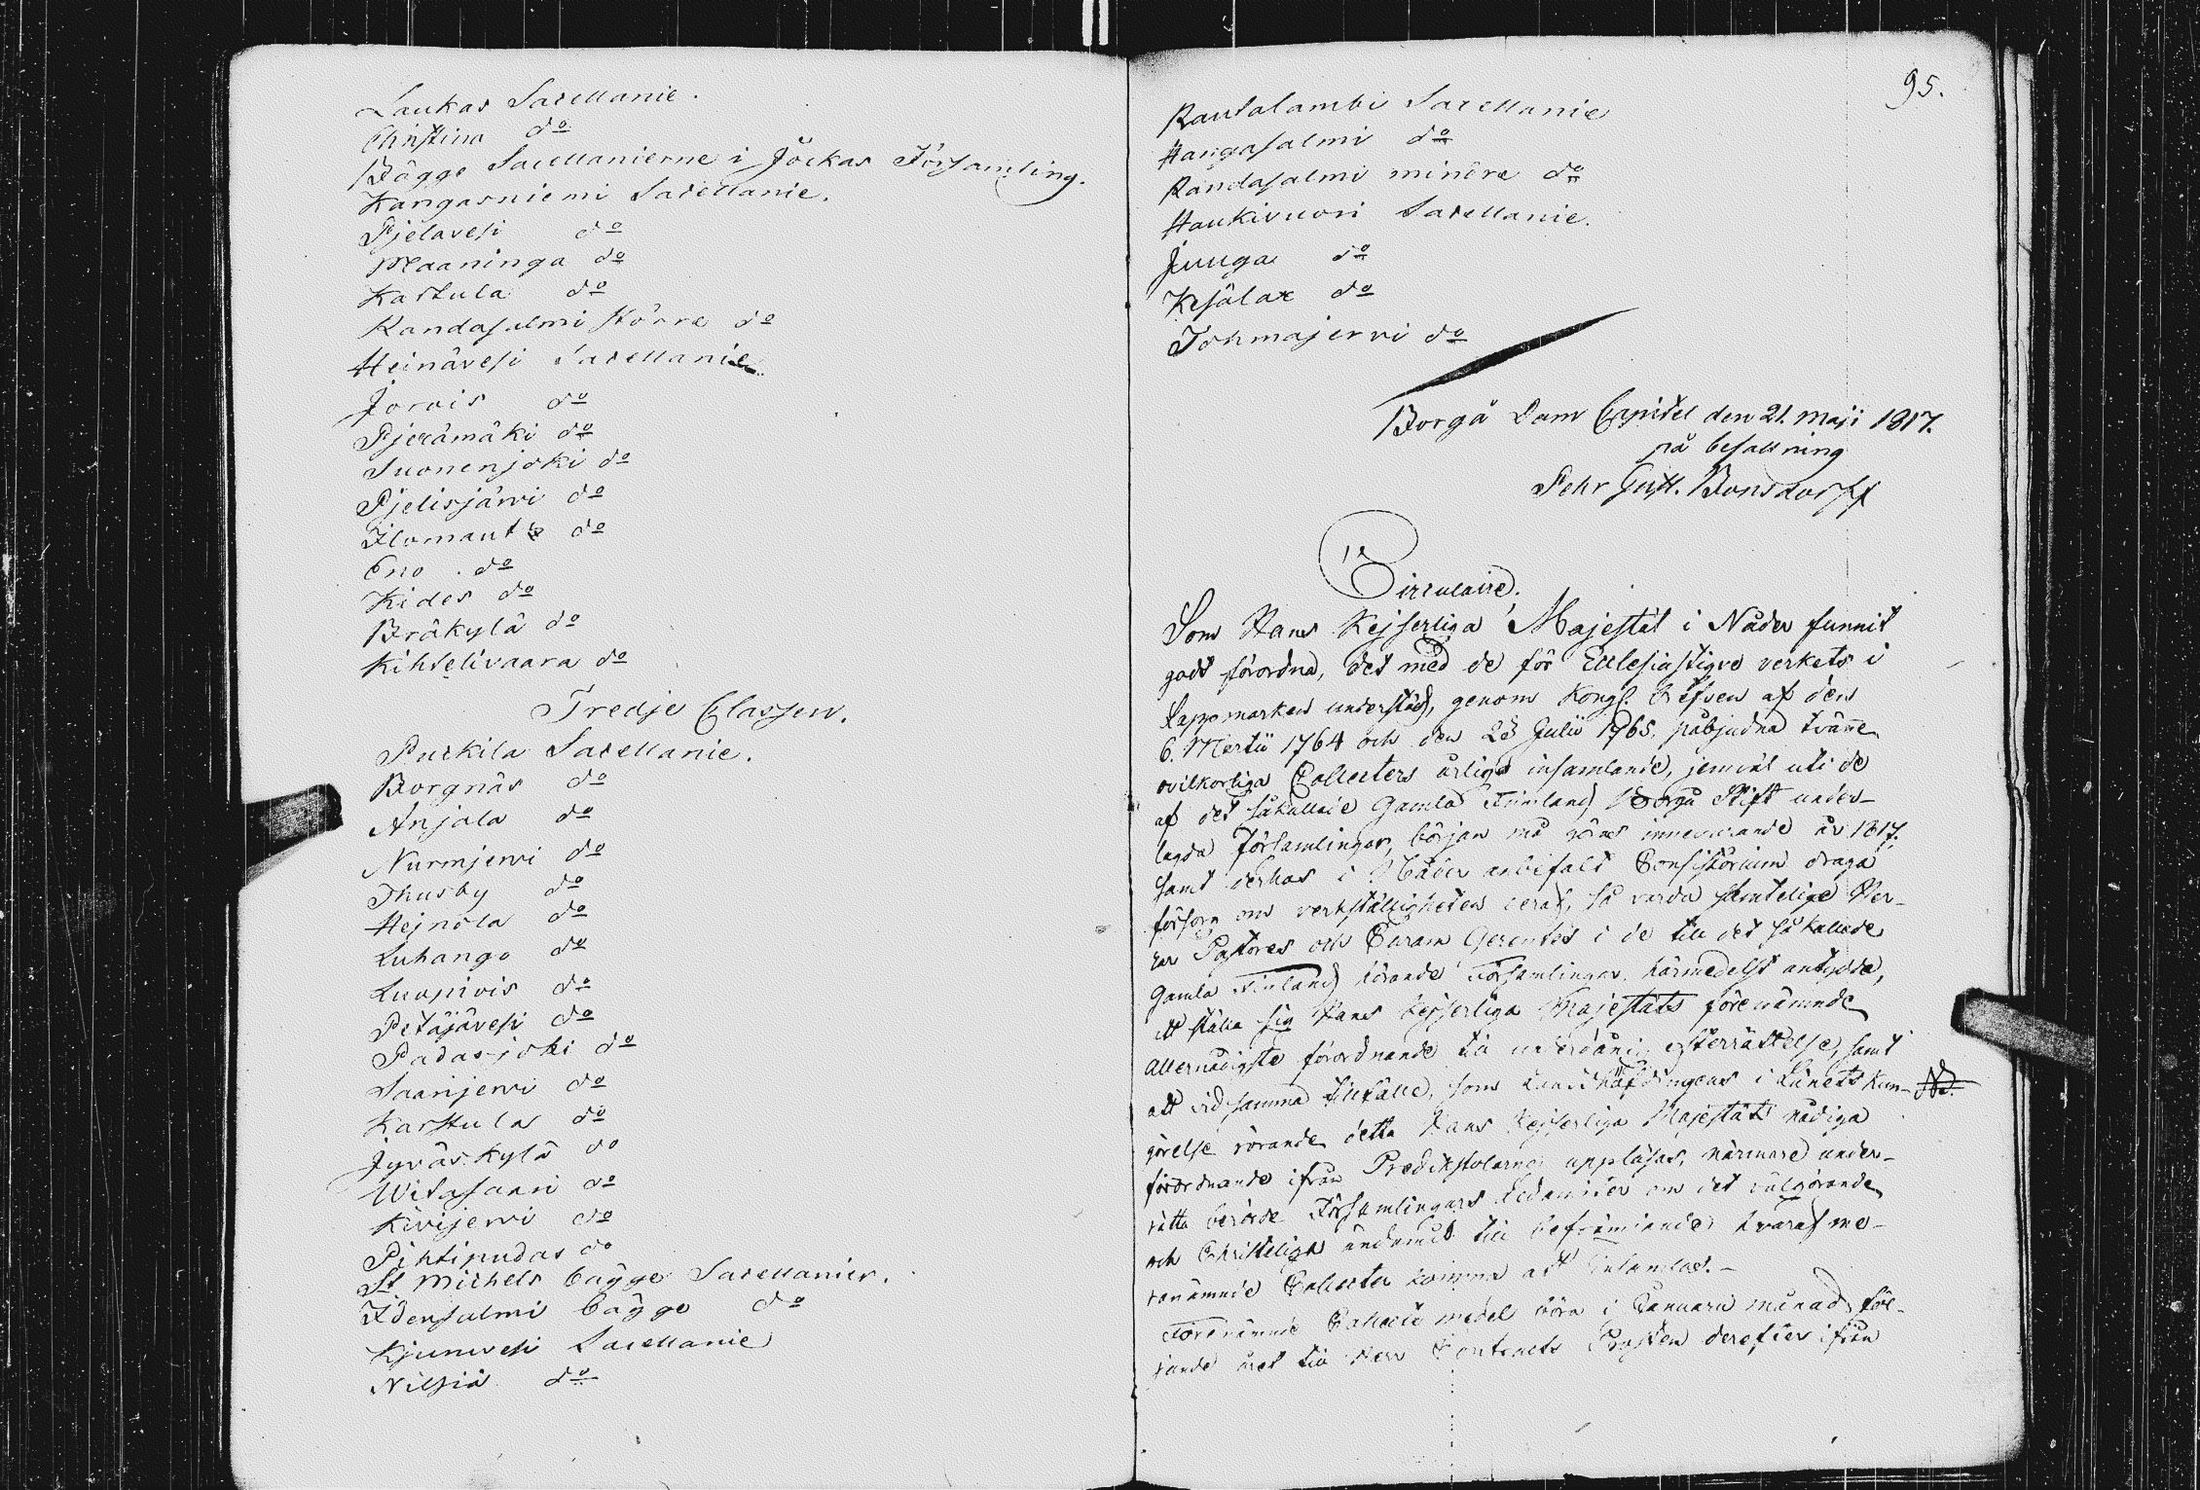 Laukas Sacellanie.
Christina do
Bägge Sacellanierne i Jockas Församling.
Kangasniemi Sacellanie.
Pjelavesi do
Maaninga do
Kartula do
Randasalmi större do
Heinävesi Sacellanie
Jorois do
Pjexämäki do
Suonenjoki do
Pjelisjärvi do
Ilomants do
Eno do
Kides do
Bräkylä do
Kihtelivaara do
Tredje Classen.
Purkila Sacellanie.
Borgnäs do
Anjala do
Nurmjervi do
Thusby do
Hejnola do
Luhango do
Luopiois do
Petäjävesi do
Padasjoki do
Saarijervi do
Karstula do
Jyväskylä do
Witasaari do
Kivijervi do
Pihtipudas do
St Michels bägge Sacellanier.
Idensalmi bägge do
Kjuruvesi Sacellanie
Nilsiä do
95.
Rautalambi Sacellanie
Hangasalmi do
Randasalmi mindre do
Haukivuori Sacellanie.
Juuga do
Kesälax do
Tohmajervi do
Borgå Dom Capitel den 21. Maji 1817.
på befallning
Pehr Gust. Bonsdorff
Circulaire.
Som Hans Kejserliga Majestät i Nåder funnit
godt förordna, det med de för Ecclesiastique verkets i
Lappmarken understöd, genom Kongl. brefven af den
6. Martii 1764 och den 23 Julii 1765. påbjudna tvänne
ovilkorliga Collecters årliga insamlande, jemväl uti de
af det såkallade Gamla Finland Borgå Stift under-
lagda Församlingar, början må göras innevarande år 1817.
samt derhos i Nåder anbefalt Consistorium draga
försorg om verkställigheten deraf, så varda samtelige Her-
rar Pastores och Curam Gerentes i de till det så kallade
Gamla Finland hörande Församlingar härmedelst antydde,
att ställa sig Hans Kejserliga Majestäts förenämnde
Allernådigste förordnande till underdånig efterrättelse, samt
att vid samma tillfälle, som Landshöfdingens i Länets Kun-
görelse rörande detta Hans Kejserliga Majestäts nådiga
förordnande ifrån Predikstolarne uppläsas, närmare under-
rätta berörde Församlingars Ledamöter om det välgörande
och Christeliga ändamål till befrämjande hvaraf me-
ranämnde Collecter komma att insamlas.-
Förenämnde Collect medel böra i Januarii månad föl-
jande året till Herr Contracts Prosten derefter ifrån